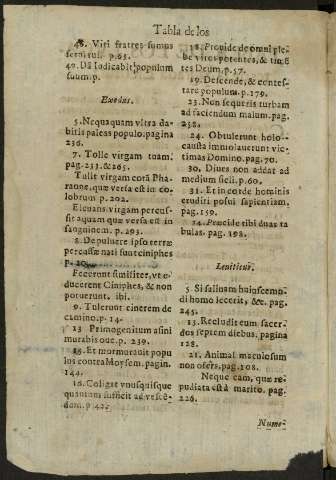 Tabla de los
46. Viri fratres sumus
serui tui. p. 65.
49. Dā Iudicabit populum
suum. p.
Exodus.
5. Nequaquam vltra da-
bitis paleas populo. pagina
236.
7. Tolle virgam tuam.
pag. 253. & 265.
Tulit virgam corā Pha-
raone, quæ versa est in co-
lobrum p. 202.
Eleuans virgam percus-
sit aquam quæ versa est in
sanguinem. p. 293.
8. De puluere ipso terræ
percussæ nati sunt ciniphes
p. 20
Fecerunt similiter, vt e-
ducerent Ciniphes, & non
potuerunt. ibi.
9. Tulerunt cinerem de
camino. p. 14
13 Primogenitum asini
mutabis oue. p. 239.
15. Et murmurauit popu
lus contra Moysem. pagin.
144.
16. Coligat vnusquisque
quantum sufficit ad vescē-
dum. p. 42.
18. Prouide de omni ple-
be viros potentes, & timē
tes Deum. p. 57.
19. Descende, & contes-
tare populum. p. 179.
23. Non sequeris turbam
ad faciendum malum. pag.
238.
24. Obtulerunt holo-
causta immolauerunt vic-
timas Domino. pag. 70.
30. Diues non addat ad
medium sicli. p. 60.
31. Et in corde hominis
eruditi posui sapientiam.
pag. 159.
34. Præcide tibi duas ta
bulas. pag. 198.
Leuiticus.
5 Si saluam huiuscemo-
di homo fecerit, &c. pag.
245.
13. Recludit eum sacer-
dos septem diebus. pagina
128.
21. Animal maculosum
non offers. pag. 108.
Neque eam, quæ re-
pudiata est à marito. pag.
226.
Nume-